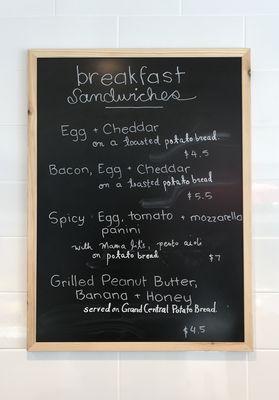 breakfast
Sandwiches
Egg + Cheddar
on a toasted potato bread.
$4.5
Bacon, Egg + Cheddar
on a toasted potato bread
$5.5
Spicy Egg, tomato + mozzarella
panini
with Mama Lil's, pesto aioli
on potato bread
$7
Grilled Peanut Butter,
Banana + Honey
served on Grand Central Potato Bread.
$4.5